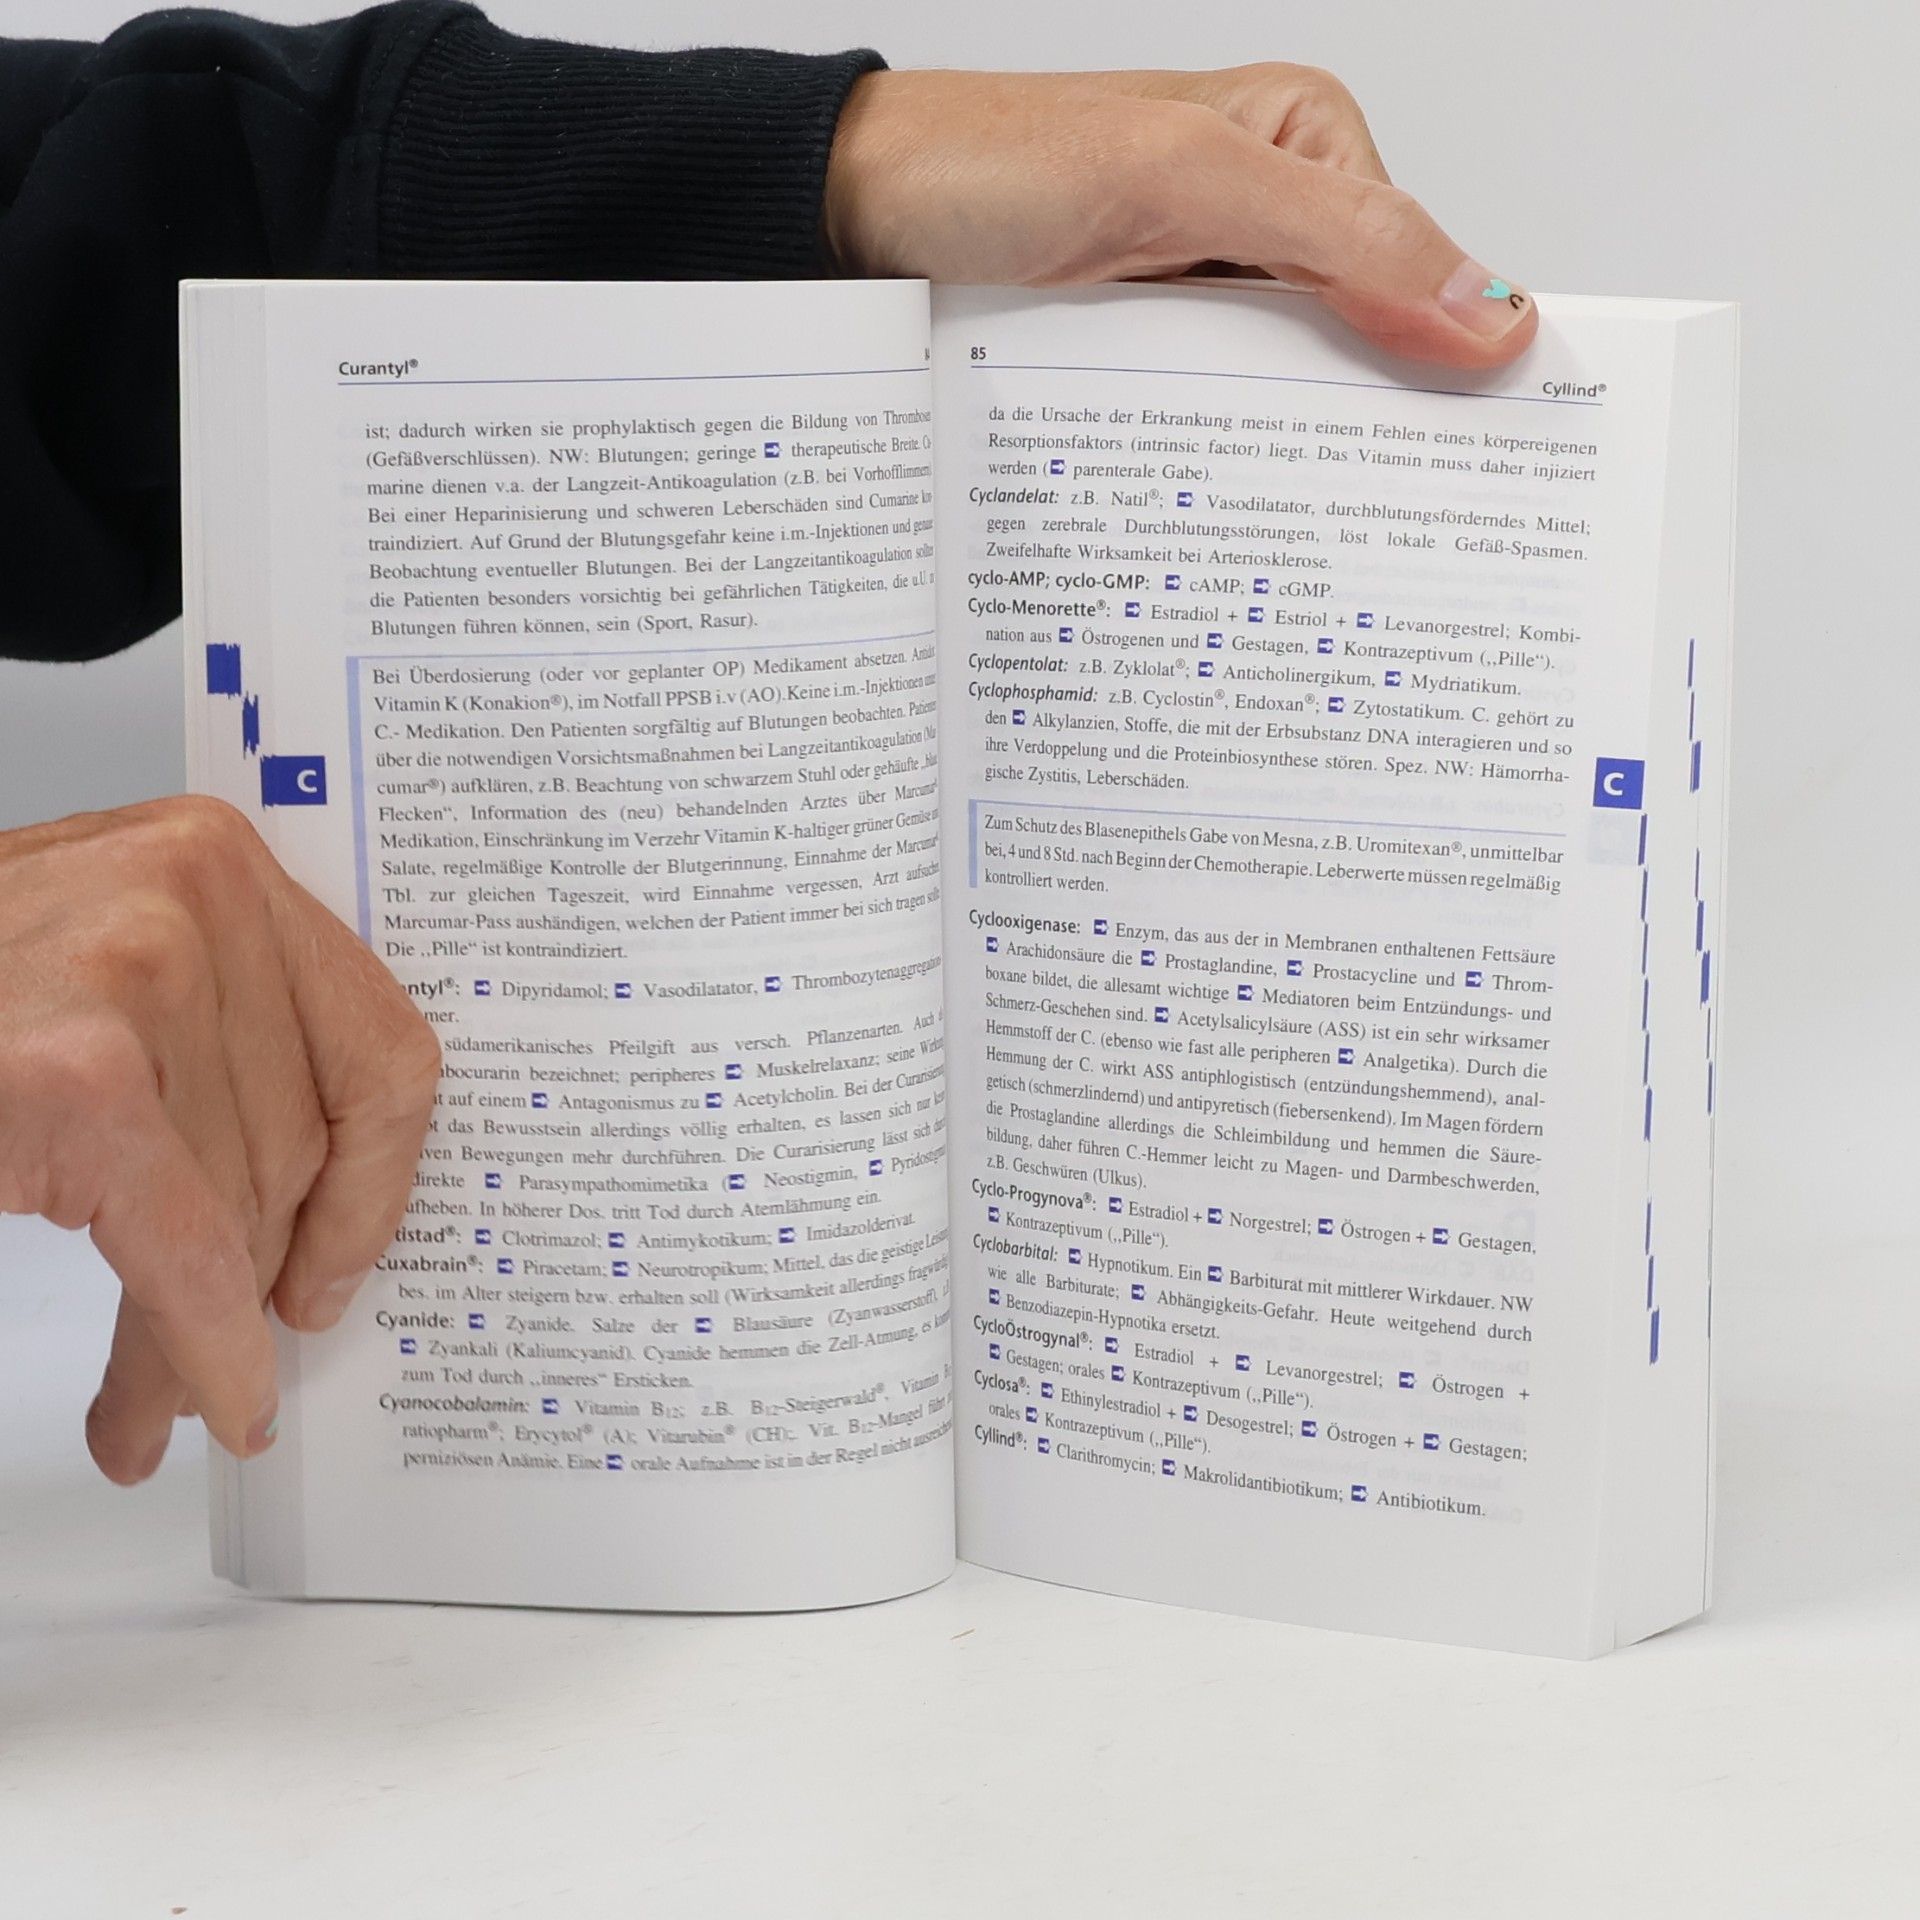 Curantyl®
ist; dadurch wirken sie prophylaktisch gegen die Bildung von
(Gefäßverschlüssen). NW: Blutungen; geringe ➡ therapeutische Breite.
marine dienen v.a. der Langzeit-Antikoagulation (z.B. bei Vorhofflimmern)
Bei einer Heparinisierung und schweren Leberschäden sind Cumarine
traindiziert. Auf Grund der Blutungsgefahr keine i.m.-Injektionen und
Beobachtung eventueller Blutungen. Bei der Langzeitantikoagulation
die Patienten besonders vorsichtig bei gefährlichen Tätigkeiten, die u.U.
Blutungen führen können, sein (Sport, Rasur).
Bei Überdosierung (oder vor geplanter OP) Medikament absetzen.
Vitamin K (Konakion®), im Notfall PPSB i.v (AO).Keine i.m.-Injektionen
C.- Medikation. Den Patienten sorgfältig auf Blutungen beobachten.
über die notwendigen Vorsichtsmaßnahmen bei Langzeitantikoagulation
cumar®) aufklären, z.B. Beachtung von schwarzem Stuhl oder gehäufte
Flecken“, Information des (neu) behandelnden Arztes über
Medikation, Einschränkung im Verzehr Vitamin K-haltiger grüner
Salate, regelmäßige Kontrolle der Blutgerinnung, Einnahme der
Tbl. zur gleichen Tageszeit, wird Einnahme vergessen, Arzt
Marcumar-Pass aushändigen, welchen der Patient immer bei sich tragen
Die „Pille“ ist kontraindiziert.
ntyl®: ➡ Dipyridamol; ➡ Vasodilatator, ➡ Thrombozytenaggregation
mer.
südamerikanisches Pfeilgift aus versch. Pflanzenarten. Auch
bocurarin bezeichnet; peripheres ➡ Muskelrelaxanz; seine
t auf einem ➡ Antagonismus zu ➡ Acetylcholin. Bei der
das Bewusstsein allerdings völlig erhalten, es lassen sich nur
ven Bewegungen mehr durchführen. Die Curarisierung lässt sich
direkte ➡ Parasympathomimetika (➡ Neostigmin, ➡
ufheben. In höherer Dos. tritt Tod durch Atemlähmung ein.
tistad®: ➡ Clotrimazol; ➡ Antimykotikum; ➡ Imidazolderivat.
Cuxabrain®: ➡ Piracetam; ➡ Neurotropikum; Mittel, das die geistige
bes. im Alter steigern bzw. erhalten soll (Wirksamkeit allerdings
Cyanide: ➡ Zyanide. Salze der ➡ Blausäure (Zyanwasserstoff),
➡ Zyankali (Kaliumcyanid). Cyanide hemmen die Zell-Atmung, es
zum Tod durch „inneres“ Ersticken.
Cyanocobalamin: ➡ Vitamin B12; z.B. B12-Steigerwald®, Vitamin
ratiopharm®; Erycytol® (A); Vitarubin® (CH);. Vit. B12-Mangel führt
perniziösen Anämie. Eine ➡ orale Aufnahme ist in der Regel nicht
C
85
Cyllind®
da die Ursache der Erkrankung meist in einem Fehlen eines körpereigenen
Resorptionsfaktors (intrinsic factor) liegt. Das Vitamin muss daher injiziert
werden (➡ parenterale Gabe).
Cyclandelat: z.B. Natil®; ➡ Vasodilatator, durchblutungsförderndes Mittel;
gegen zerebrale Durchblutungsstörungen, löst lokale Gefäß-Spasmen.
Zweifelhafte Wirksamkeit bei Arteriosklerose.
cyclo-AMP; cyclo-GMP: ➡ cAMP; ➡ cGMP.
Cyclo-Menorette®: ➡ Estradiol + ➡ Estriol + ➡ Levanorgestrel; Kombi-
nation aus ➡ Östrogenen und ➡ Gestagen, ➡ Kontrazeptivum („Pille“).
Cyclopentolat: z.B. Zyklolat®; ➡ Anticholinergikum, ➡ Mydriatikum.
Cyclophosphamid: z.B. Cyclostin®, Endoxan®; ➡ Zytostatikum. C. gehört zu
den ➡ Alkylanzien, Stoffe, die mit der Erbsubstanz DNA interagieren und so
ihre Verdoppelung und die Proteinbiosynthese stören. Spez. NW: Hämorrha-
gische Zystitis, Leberschäden.
Zum Schutz des Blasenepithels Gabe von Mesna, z.B. Uromitexan®, unmittelbar
bei, 4 und 8 Std. nach Beginn der Chemotherapie. Leberwerte müssen regelmäßig
kontrolliert werden.
Cyclooxigenase: ➡ Enzym, das aus der in Membranen enthaltenen Fettsäure
➡ Arachidonsäure die ➡ Prostaglandine, ➡ Prostacycline und ➡ Throm-
boxane bildet, die allesamt wichtige ➡ Mediatoren beim Entzündungs- und
Schmerz-Geschehen sind. ➡ Acetylsalicylsäure (ASS) ist ein sehr wirksamer
Hemmstoff der C. (ebenso wie fast alle peripheren ➡ Analgetika). Durch die
Hemmung der C. wirkt ASS antiphlogistisch (entzündungshemmend), anal-
getisch (schmerzlindernd) und antipyretisch (fiebersenkend). Im Magen fördern
die Prostaglandine allerdings die Schleimbildung und hemmen die Säure-
bildung, daher führen C.-Hemmer leicht zu Magen- und Darmbeschwerden,
z.B. Geschwüren (Ulkus).
Cyclo-Progynova®: ➡ Estradiol + ➡ Norgestrel; ➡ Östrogen + ➡ Gestagen,
➡ Kontrazeptivum („Pille“).
Cyclobarbital: ➡ Hypnotikum. Ein ➡ Barbiturat mit mittlerer Wirkdauer. NW
wie alle Barbiturate; ➡ Abhängigkeits-Gefahr. Heute weitgehend durch
➡ Benzodiazepin-Hypnotika ersetzt.
CycloÖstrogynal®: ➡ Estradiol + ➡ Levanorgestrel; ➡ Östrogen +
➡ Gestagen; orales ➡ Kontrazeptivum („Pille“).
Cyclosa®: ➡ Ethinylestradiol + ➡ Desogestrel; ➡ Östrogen + ➡ Gestagen;
orales ➡ Kontrazeptivum („Pille“).
Cyllind®: ➡ Clarithromycin; ➡ Makrolidantibiotikum; ➡ Antibiotikum.
C